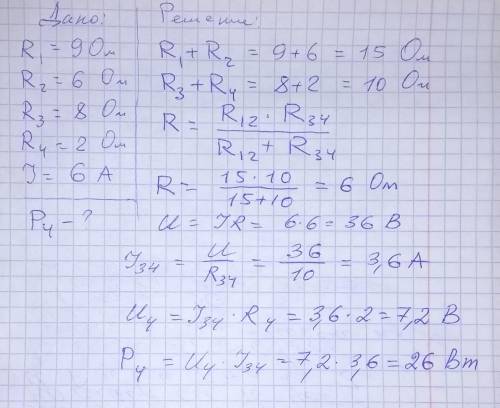 Дано:
R₁ = 9 Ом
R₂ = 6 Ом
R₃ = 8 Ом
R₄ = 2 Ом
I = 6 А
P₄ - ?
Решение:
R₁ + R₂ = 9 + 6 = 15 Ом
R₃ + R₄ = 8 + 2 = 10 Ом
R = (R₁₂ · R₃₄) / (R₁₂ + R₃₄)
R = (15 · 10) / (15 + 10) = 6 Ом
U = IR = 6 · 6 = 36 В
I₃₄ = U / R₃₄ = 36 / 10 = 3,6 А
U₄ = I₃₄ · R₄ = 3,6 · 2 = 7,2 В
P₄ = U₄ · I₃₄ = 7,2 · 3,6 = 26 Вт